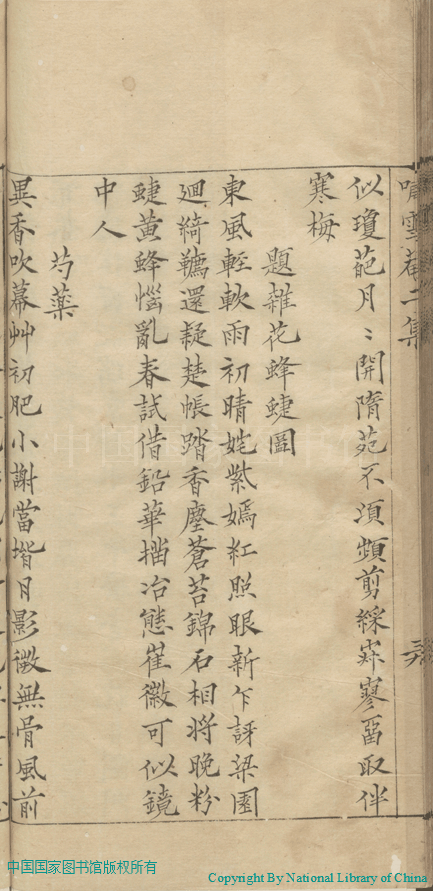 嘯雪菴二集
似瓊葩月〻開隋苑不須頻剪綵寂寥畱取伴
寒梅
題雜花蜂蜨圖
東風輕軟雨初晴姹紫嫣紅照眼新乍訝梁園
廻綺韉還疑楚帳踏香塵蒼苔錦石相將晚粉
蜨黃蜂惱亂春試借鉛華描冶態崔徽可似鏡
中人
芍藥
異香吹幕艸初肥小謝當堦日影微無骨風前
中国国家图书馆版权所有
Copyright By National Library of China